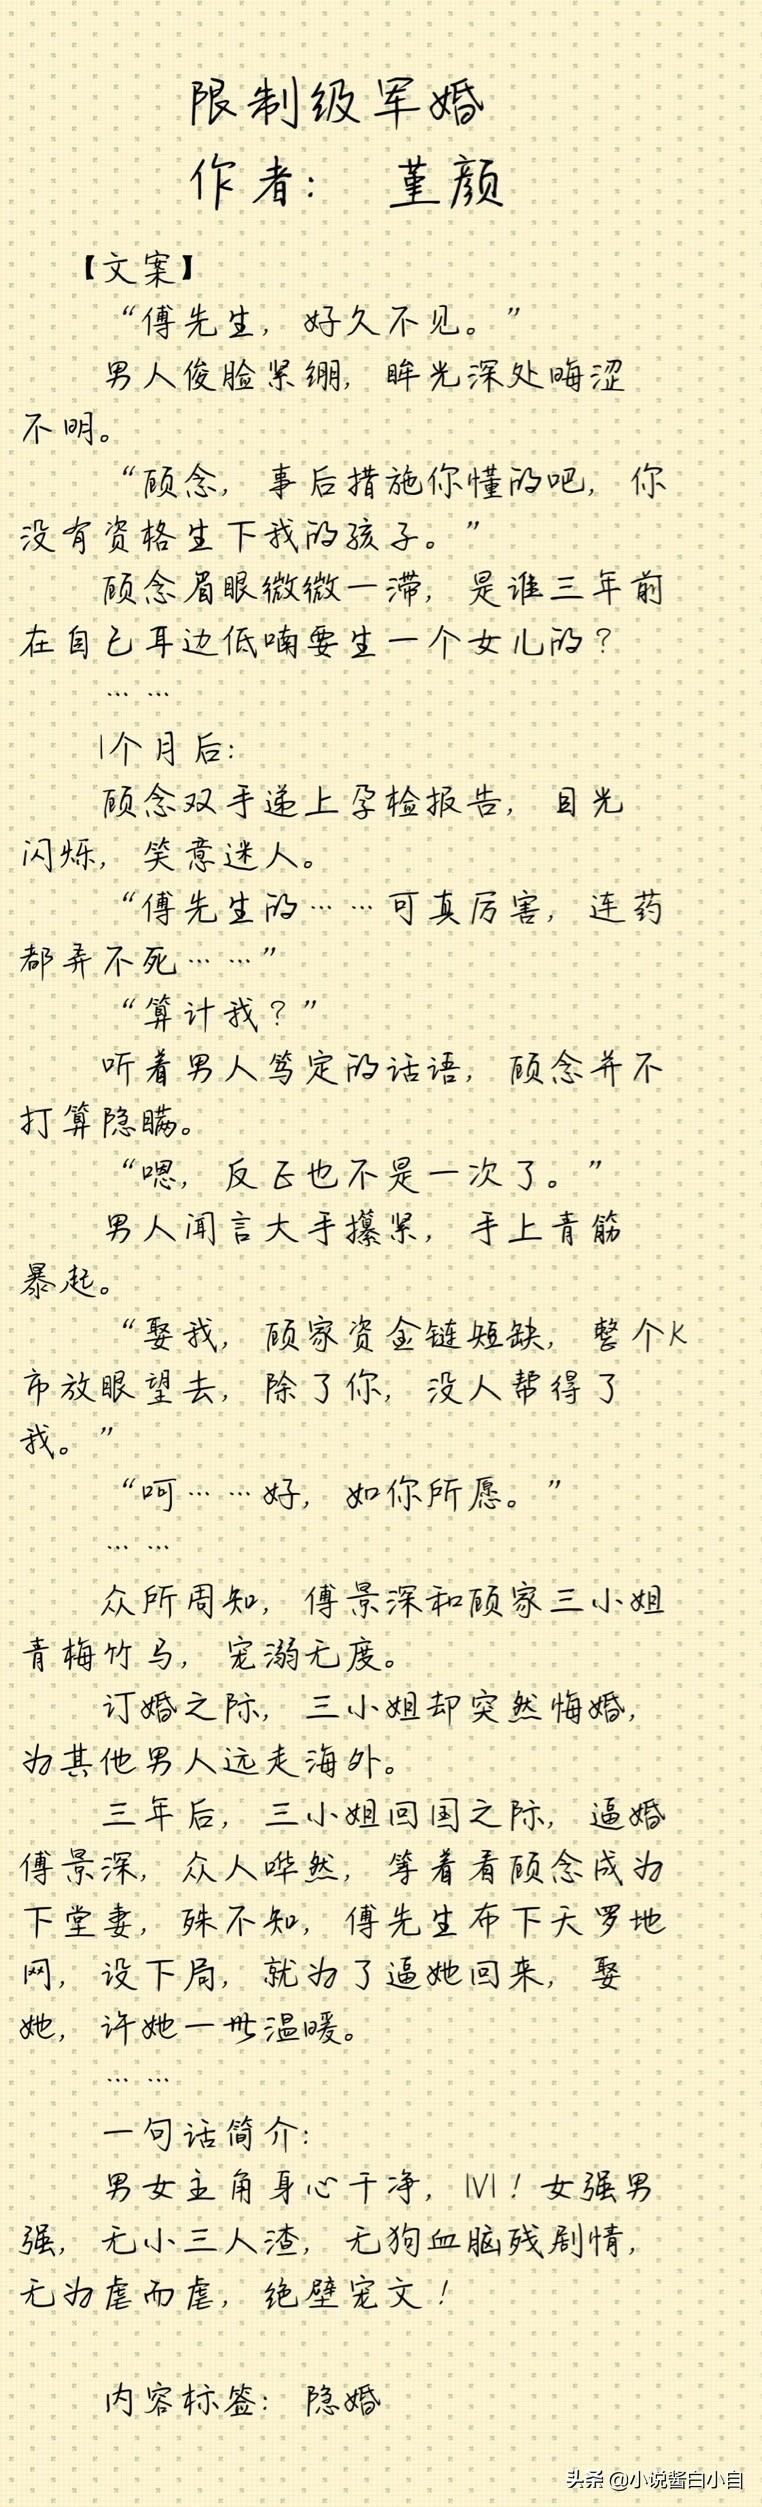 限制级军婚
作者： 堇颜
【文案】
“傅先生，好久不见。”
男人俊脸紧绷，眸光深处晦涩
不明。
“顾念，事后措施你懂的吧，你
没有资格生下我的孩子。”
顾念眉眼微微一滞，是谁三年前
在自己耳边低喃要生一个女儿的？
… …
1个月后：
顾念双手递上孕检报告，目光
闪烁，笑意迷人。
“傅先生的… …可真厉害，连药
都弄不死… …”
“算计我？”
听着男人笃定的话语，顾念并不
打算隐瞒。
“嗯，反正也不是一次了。”
男人闻言大手攥紧，手上青筋
暴起。
“娶我，顾家资金链短缺，整个K
市放眼望去，除了你，没人帮得了
我。”
“呵… …好，如你所愿。”
… …
众所周知，傅景深和顾家三小姐
青梅竹马，宠溺无度。
订婚之际，三小姐却突然悔婚，
为其他男人远走海外。
三年后，三小姐回国之际，逼婚
傅景深，众人哗然，等着看顾念成为
下堂妻，殊不知，傅先生布下天罗地
网，设下局，就为了逼她回来，娶
她，许她一世温暖。
… …
一句话简介：
男女主角身心干净，1V1！女强男
强，无小三人渣，无狗血脑残剧情，
无为虐而虐，绝壁宠文！
内容标签： 隐婚
头条 @小说酱白小白